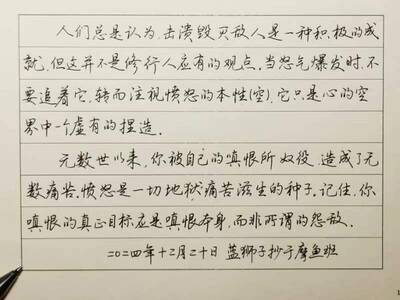 人们总是认为,击溃毁灭敌人是一种积极的成
就,但这并不是修行人应有的观点。当怒气爆发时,不
要追着它,转而注视愤怒的本性(空),它只是心的空
界中一个虚有的捏造。
无数世以来,你被自己的嗔恨所奴役,造成了无
数痛苦。愤怒是一切地狱痛苦滋生的种子。记住,你
嗔恨的真正目标应是嗔恨本身,而非所谓的怨敌。
二〇二四年十二月二十日 蓝狮子抄于摩鱼班